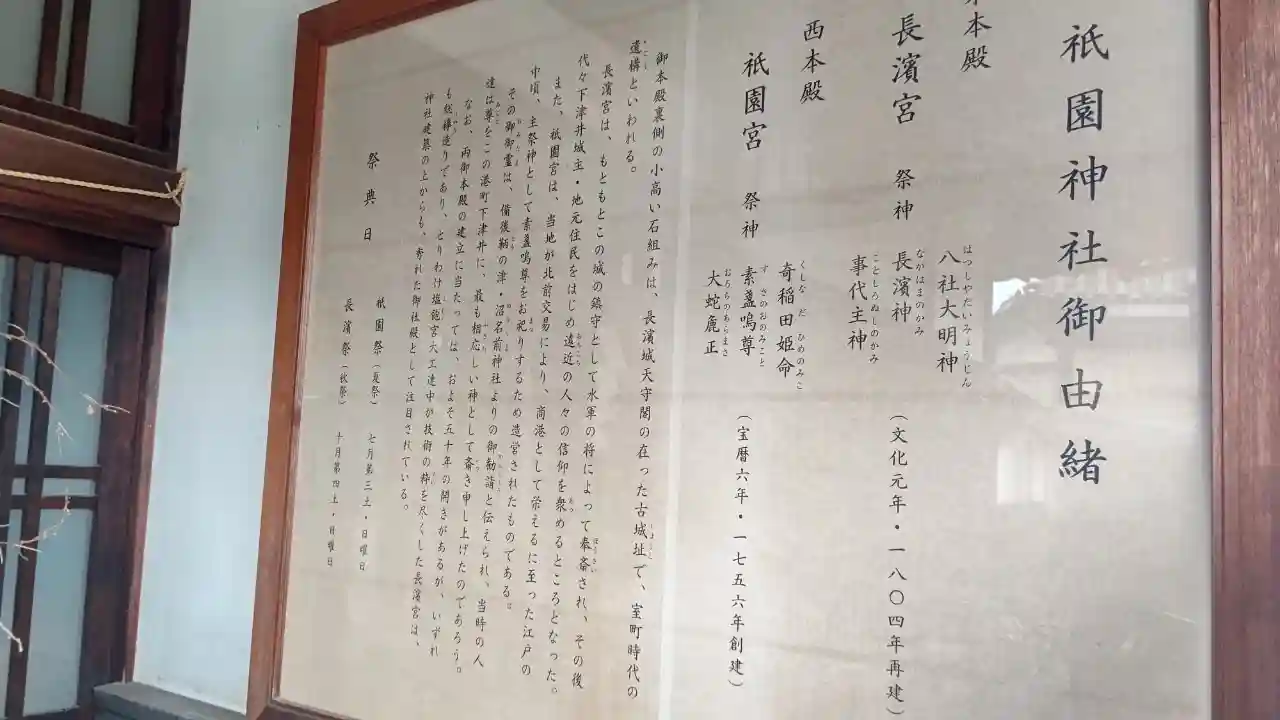 祇園神社御由緒
本殿
長濱宮 祭神
八社大明神
はつしやだいみょうじん
長濱神
ながはまのかみ
事代主神
ことしろぬしのかみ
(文化元年・一八〇四年再建)
西本殿
祇園宮 祭神
奇稲田姫命
くしなだひめのみこ
素盞嗚尊
すさのおのみこと
大蛇麁正
おろちのあらまさ
(宝暦六年・一七五六年創建)
御本殿裏側の小高い石組みは、長濱城天守閣の在った古城址で、室町時代の
遺構といわれる。
長濱宮は、もともとこの城の鎮守として水軍の将によって奉斎され、その後
代々下津井城主・地元住民をはじめ遠近の人々の信仰を衆めるところとなった。
また、祇園宮は、当地が北前交易により、商港として栄えるに至った江戸の
中頃、主祭神として素盞嗚尊をお祀りするため造営されたものである。
その御御霊は、備後鞆の津・沼名前神社よりの御勧請と伝えられ、当時の人
達は尊をこの港町下津井に、最も相応しい神として斎き申し上げたのであろう。
なお、両御本殿の建立に当たっては、およそ五十年の開きがあるが、いずれ
も総欅造りであり、とりわけ塩飽宮大工連中が技術の粋を尽くした長濱宮は、
神社建築の上からも、秀れた御社殿として注目されている。
祭典日
祇園祭(夏祭) 七月第三土・日曜日
長濱祭(秋祭) 十月第四土・日曜日